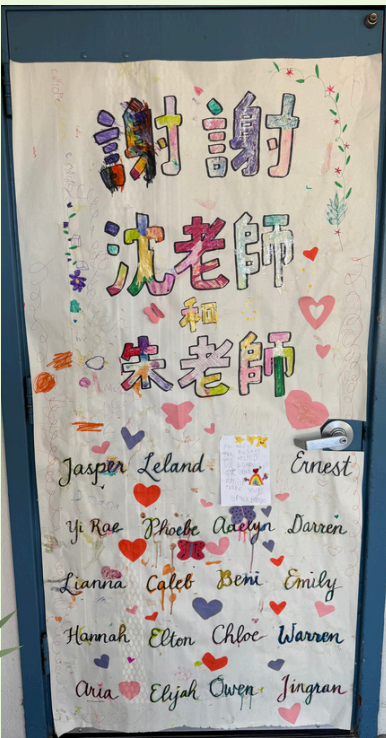 謝謝
沈老師
和
朱老師
Jasper Leland Ernest
Yi Rae Phoebe Adelyn Darren
Lianna Caleb Beni Emily
Hannah Elton Chloe Warren
Aria Elijah Owen Jingran